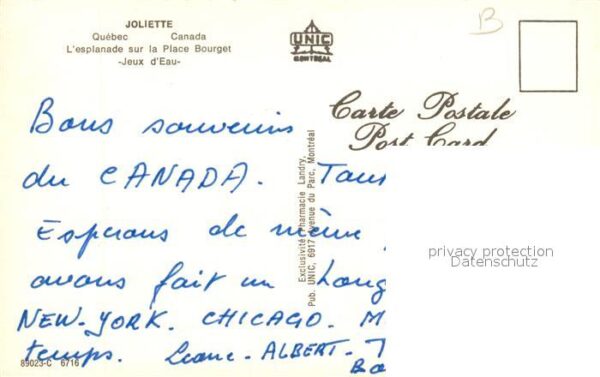 JOLIETTE
Québec Canada
L'esplanade sur la Place Bourget
-Jeux d'Eau-
UNIC
MONTREAL
B
Carte Postale
Post Card
Exclusivité Pharmacie Landry,
Pub. UNIC, 6917 Avenue du Parc, Montréal
Bons souvenirs
du CANADA. Tous
Esperons de même
avons fait un Long
NEW-YORK. CHICAGO. M
temps. ALBERT-T
89023-C 6716
privacy protection
Datenschutz